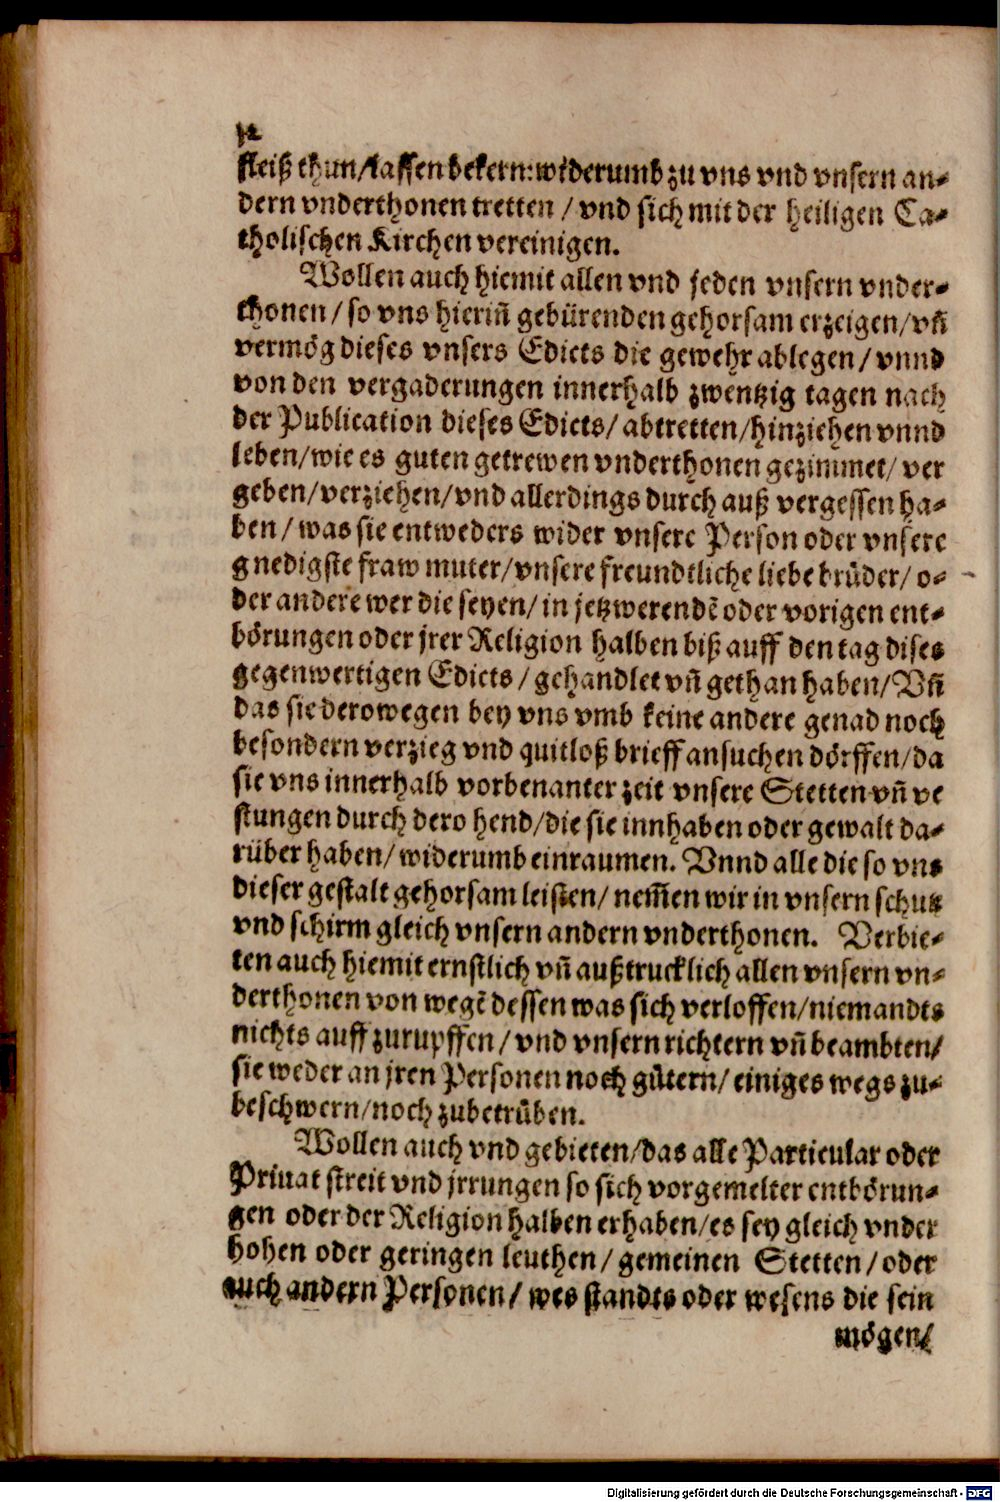 fleiß thun/lassen bekern: widerumb zu vns vnd vnsern an-
dern vnderthonen tretten / vnd sich mit der heiligen Ca-
tholischen Kirchen vereinigen.
Wollen auch hiemit allen vnd jeden vnsern vnder-
thonen / so vns hieriñ gebürenden gehorsam erzeigen/vñ
vermög dieses vnsers Edicts die gewehr ablegen / vnnd
von den vergaderungen innerhalb zwentzig tagen nach
der Publication dieses Edicts/ abtretten/hinziehen vnnd
leben/wie es guten getrewen vnderthonen gezimmet/ ver
geben/verziehen/vnd allerdings durch auß vergessen ha-
ben / was sie entweders wider vnsere Person oder vnsere
gnedigste fraw muter/vnsere freundtliche liebe brüder/ o-
der andere wer die seyen/ in jetzwerendẽ oder vorigen ent-
börungen oder jrer Religion halben biß auff den tag dises
gegenwertigen Edicts / gehandlet vñ gethan haben/Vñ
das sie derowegen bey vns vmb keine andere genad noch
besondern verzieg vnd quitloß brieff ansuchen dörffen/da
sie vns innerhalb vorbenanter zeit vnsere Stetten vñ ve
stungen durch dero hend/die sie innhaben oder gewalt da-
rüber haben/ widerumb einraumen. Vnnd alle die so vns
dieser gestalt gehorsam leisten/ nem̃en wir in vnsern schutz
vnd schirm gleich vnsern andern vnderthonen. Verbie-
ten auch hiemit ernstlich vñ außtrucklich allen vnsern vn-
derthonen von wegẽ dessen was sich verloffen/niemandts
nichts auff zurupffen / vnd vnsern richtern vñ beambten/
sie weder an jren Personen noch gütern/ einiges wegs zu-
beschwern/noch zubetrüben.
Wollen auch vnd gebieten/das alle Particular oder
Priuat streit vnd jrrungen so sich vorgemelter entbörun-
gen oder der Religion halben erhaben/es sey gleich vnder
hohen oder geringen leuthen/ gemeinen Stetten / oder
auch andern Personen/ wes standts oder wesens die sein
mögen/
Digitalisierung gefördert durch die Deutsche Forschungsgemeinschaft - DFG